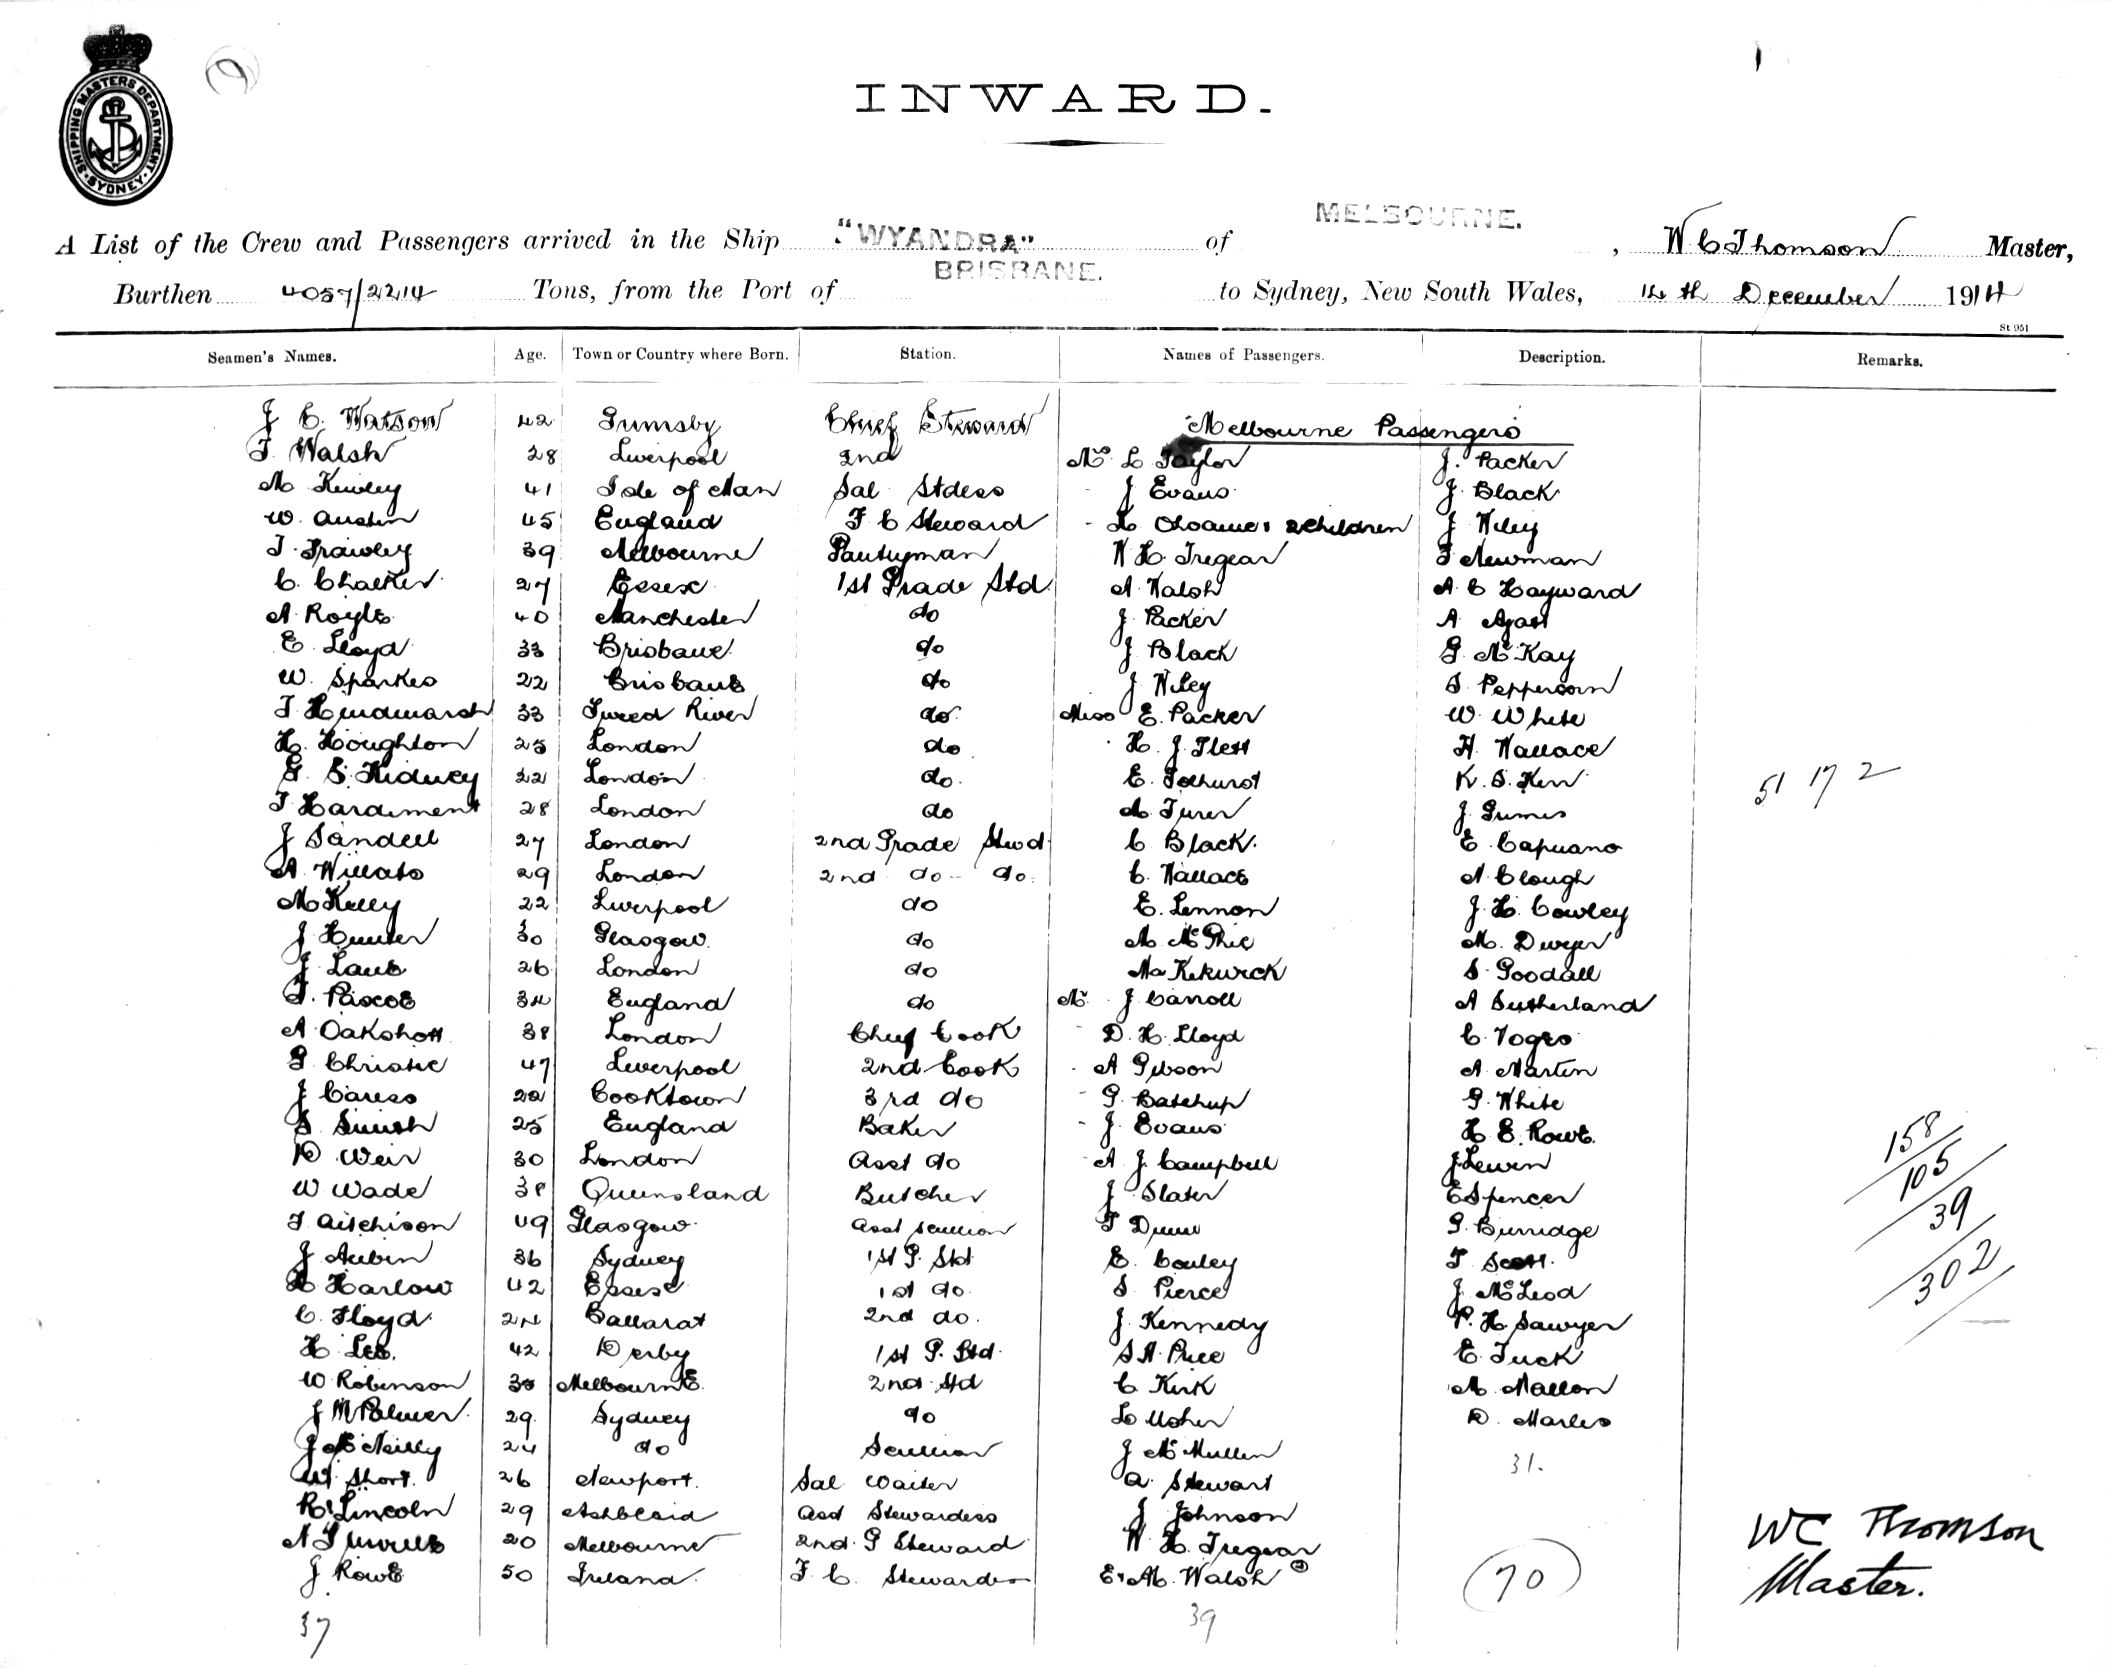 SHIPPING MASTERS DEPARTMENT. SYDNEY
INWARD.
A List of the Crew and Passengers arrived in the Ship "WYANDRA" of MELBOURNE. , W C Thomson Master,
Burthen 4057/2214 Tons, from the Port of BRISBANE. to Sydney, New South Wales, 14th December 1914
St 951
Seamen's Names. Age. Town or Country where Born. Station. Names of Passengers. Description. Remarks.
J C. Watson 42 Grimsby Chief Steward Melbourne Passengers
T. Walsh 28 Liverpool 2nd Mrs L Taylor J. Packer
M Kewley 41 Isle of Man Sal Stdess J Evans J. Black
W. Austin 45 England F C Steward 2 Children J Wiley
T. Frawley 39 Melbourne Pantryman W H. Tregear T Newman
C. Chalker 27 Essex 1st Grade Std A Walsh A C Hayward
A Royle 40 Manchester do J Packer A
E. Lloyd 33 Brisbane do J Black G McKay
W. Sparkes 22 Brisbane do J Wiley S Peppercorn
T Hindmarsh 33 Tweed River do Miss E. Packer W. White
H. Houghton 25 London do H. J. Flett H. Wallace
G. S. Kidney 22 London do E. Tolhurst K. S. Kerr 51 17 2
T Hardiment 28 London do J Grimes
J Sandell 27 London 2nd Grade Stwd C Black. E. Capuano
A. Willats 29 London 2nd do do C. Wallace A Clough
M Kelly 22 Liverpool do E. Lennon J. H. Cowley
J Hunter 30 Glasgow. do M McPhie M. Dwyer
J Lane 26 London do Ma Kekwick S. Goodall
T. Pascoe 34 England do Mr J Carroll A Sutherland
A Oakshott 38 London Chief Cook D. H. Lloyd
G Christie 47 Liverpool 2nd Cook A Gibson A Martin
J Caress 22 Cooktown 3rd do G. Batchup G. White
S Smith 25 England Baker J. Evans H E. Rowe.
D Weir 30 London Asst do A J Campbell J Lewin 158
W Wade 38 Queensland Butcher J Slater E Spencer 105
T Aitchison 49 Glasgow Asst Scullion T Dunn G. Burridge 39
J Aubin 36 Sydney 1st G. Std E. Conley T Scott. 302
H Harlow 42 Essex 1st do. S Pierce J. McLeod
C. Floyd 24 Ballarat 2nd do. J. Kennedy P. H. Sawyer
H Lee. 42 Derby 1st G. Std S A Price E. Tuck
W Robinson Melbourne 2nd Std C Kirk M. Mallon
J M Palmer 29 Sydney do L Usher D. Marles
J McNeilly 24 do Scullion J McMullen
W Short. 26 Newport. Sal Waiter A. Stewart 31.
R. Lincoln 29 Asst Stewardess J Johnson
20 Melbourne 2nd. G Steward W. H. Tregear
J Rowe 50 Ireland. F. C. Steward E & M. Walsh 2 70
37 39
WC Thomson
Master.